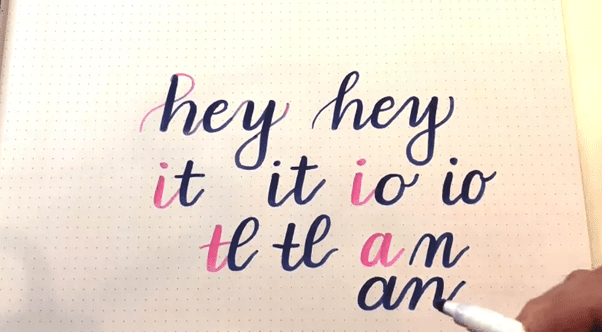 hey hey
it it io io
tl tl an
an